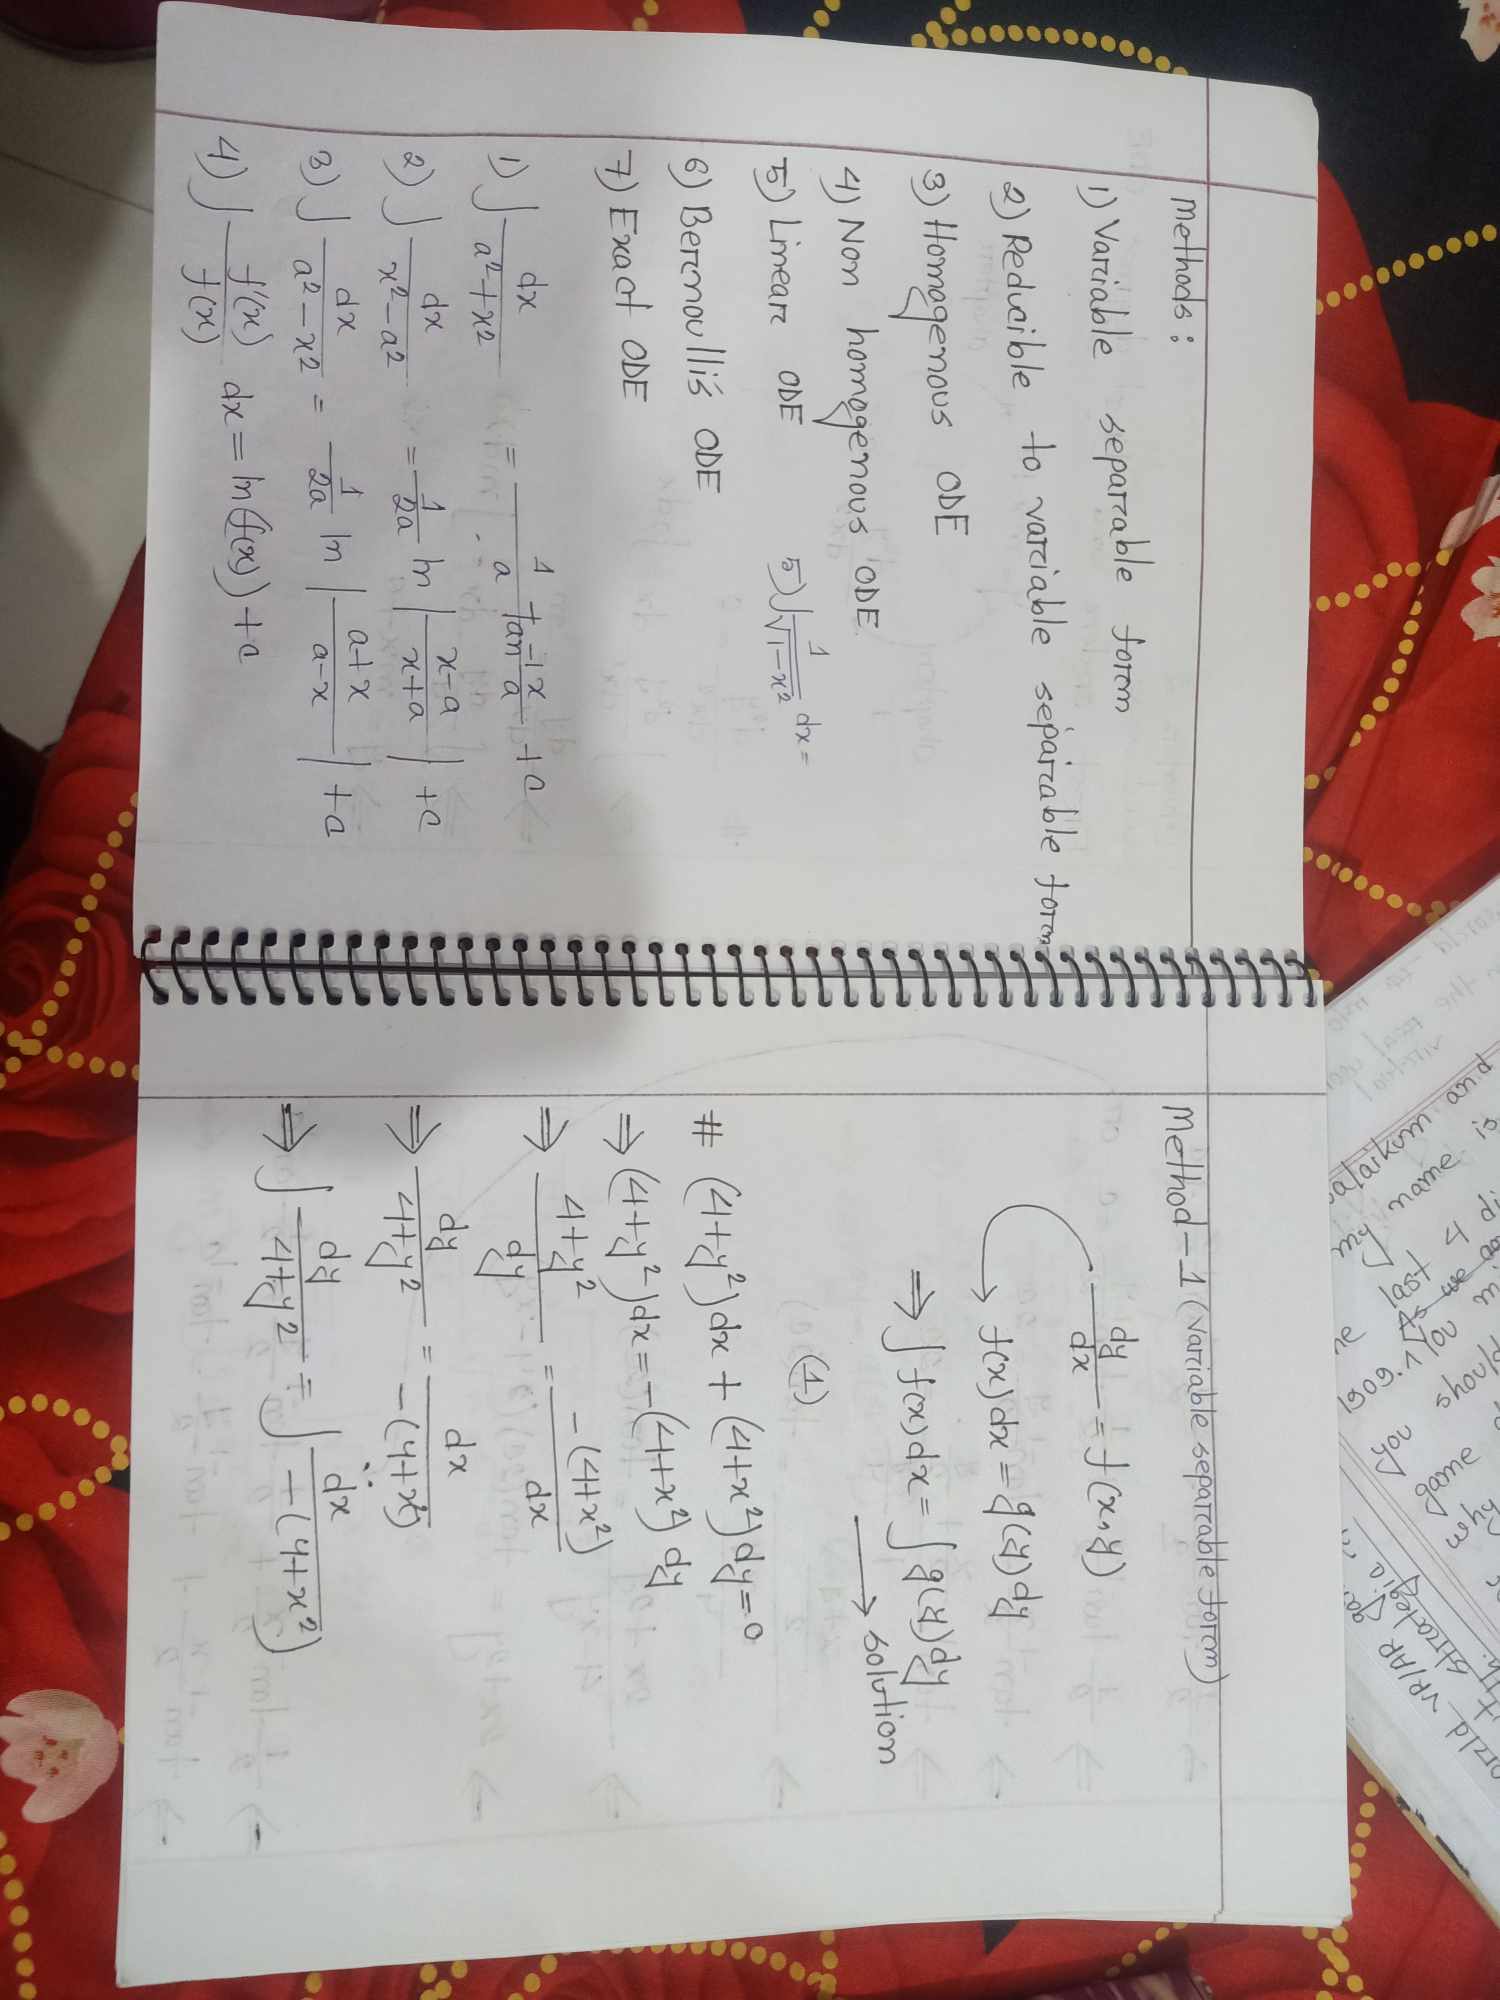 Methods:
1) Variable separable form
2) Reducible to variable separable form
3) Homogenous ODE
4) Non homogenous ODE
5) Linear ODE
6) Bernoulli's ODE
7) Exact ODE
5) ∫ 1/√(1-x²) dx =
1) ∫ dx/(a²+x²) = 1/a tan⁻¹ x/a + c
2) ∫ dx/(x²-a²) = 1/2a ln |(x-a)/(x+a)| + c
3) ∫ dx/(a²-x²) = 1/2a ln |(a+x)/(a-x)| + c
4) ∫ f'(x)/f(x) dx = ln(f(x)) + c
Method-1 (Variable separable form)
dy/dx = f(x,y)
→ f(x)dx = g(y)dy
⇒ ∫f(x)dx = ∫g(y)dy
→ solution
(1)
# (4+y²)dx + (4+x²)dy=0
⇒ (4+y²)dx = -(4+x²)dy
⇒ (4+y²)/dy = -(4+x²)/dx
⇒ dy/(4+y²) = dx/-(4+x²)
⇒ ∫ dy/(4+y²) = ∫ dx/-(4+x²)
alaikum and
my name is
last
you should
game
VR/AR
strategic